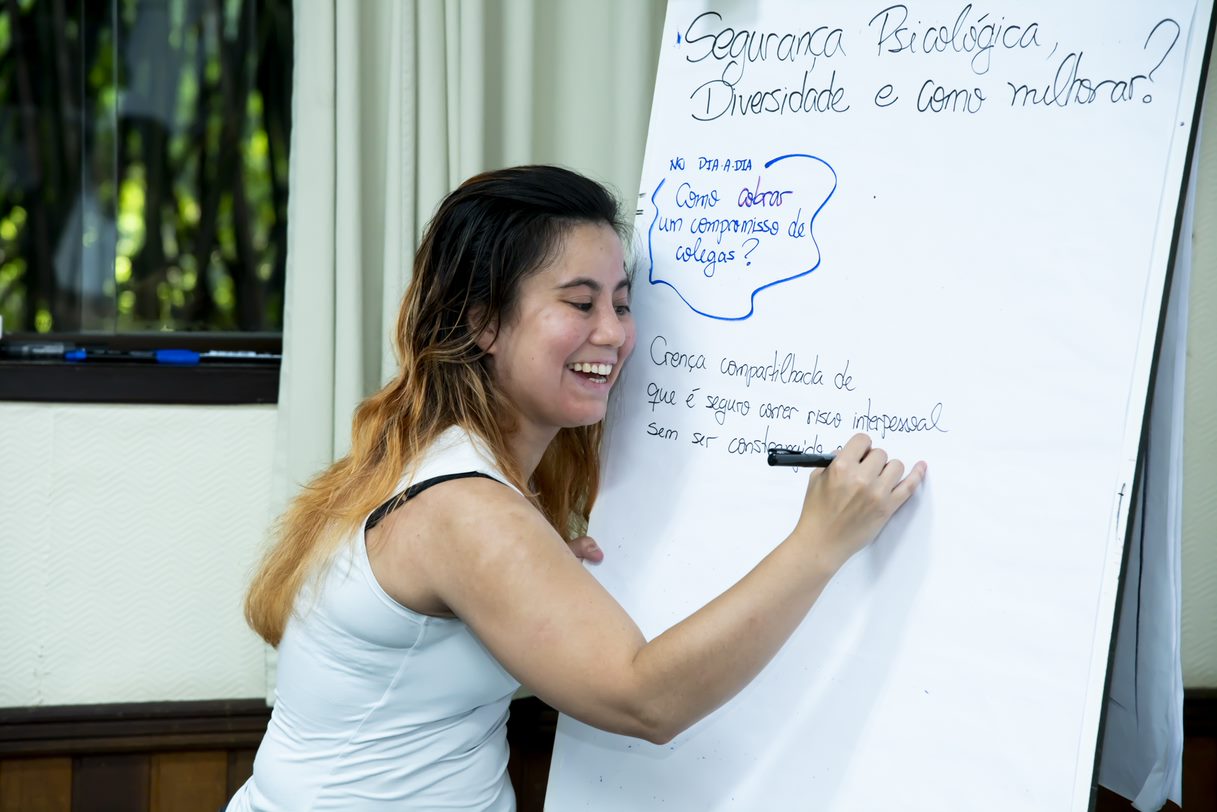 Segurança Psicológica,
Diversidade e como milhorar?
NO DIA-A-DIA
Como cobrar
um compromisso de
colegas?
Crença compartilhada de
que é seguro correr risco interpessoal
sem ser constrangido